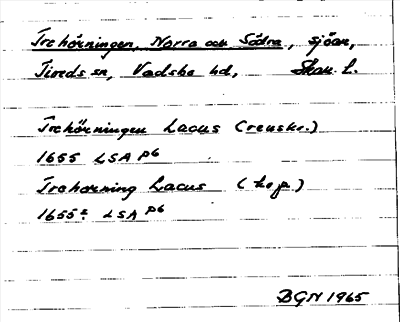 Trehörningen, Norra och Södra, sjöar,
Tiveds sn, Vadsbo hd, Skar. l.
Trehörningen Lacus (renskr.)
1655 LSA P6
Trehorning Lacus (kop.)
1655² LSA P6
BGN 1965